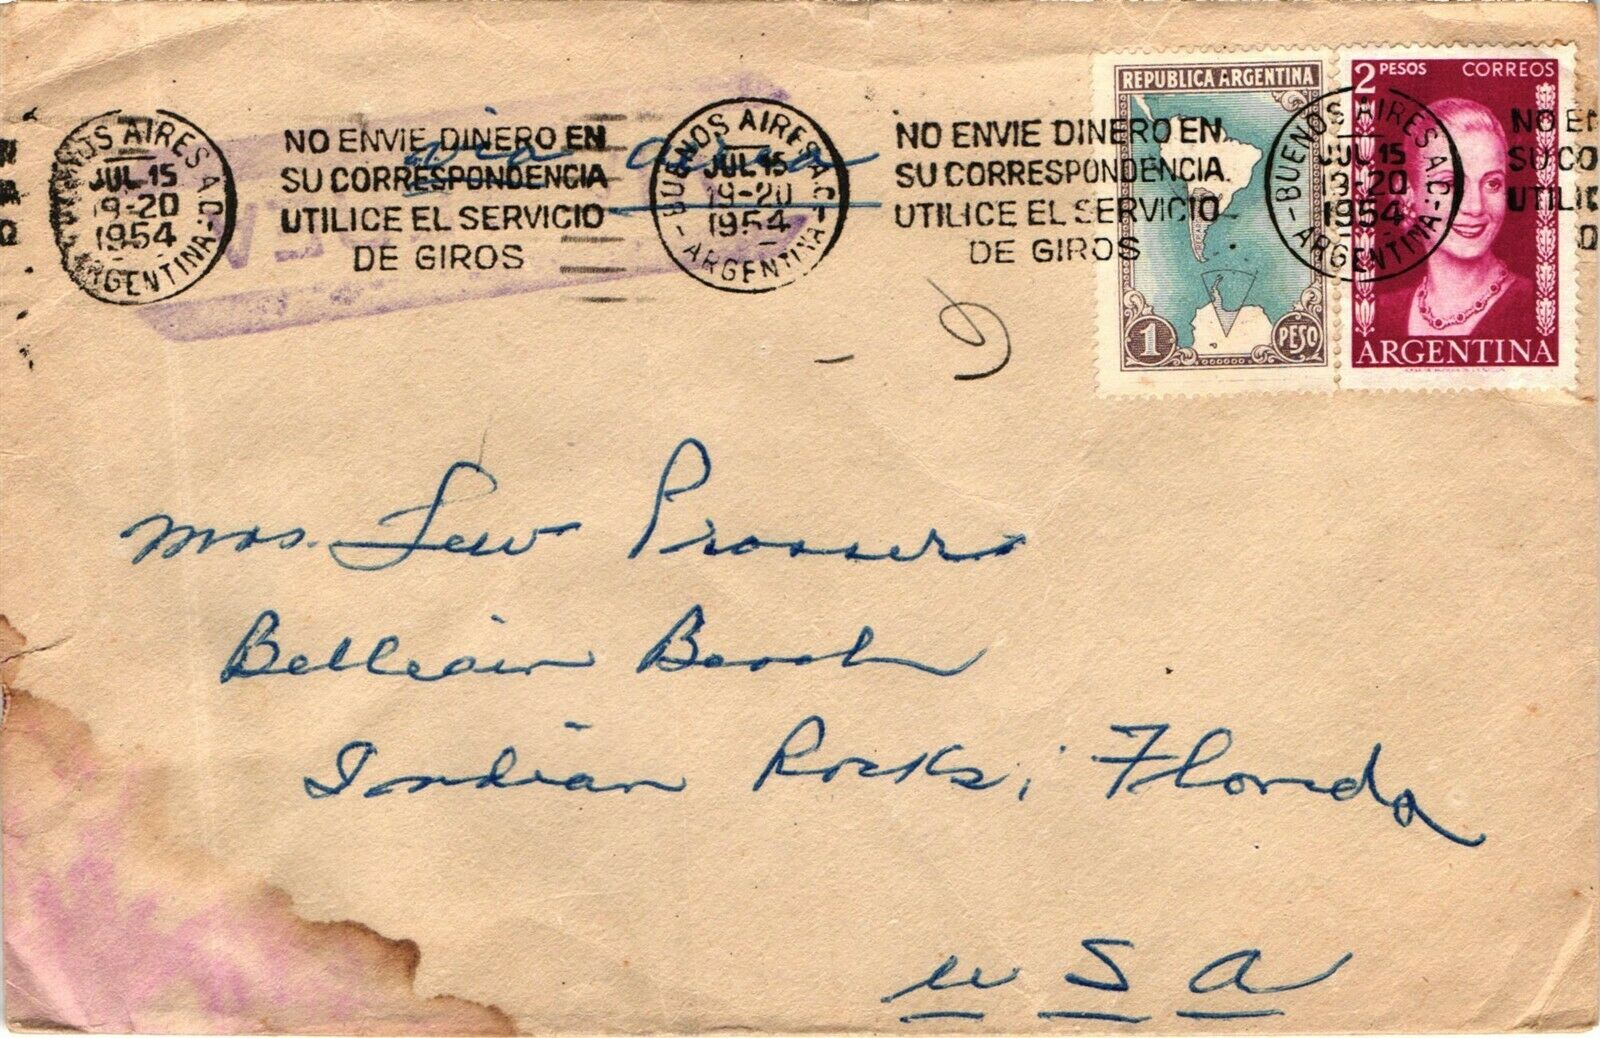 BUENOS AIRES A.C.
JUL 15
19-20
1954
ARGENTINA
NO ENVIE DINERO EN
SU CORRESPONDENCIA
UTILICE EL SERVICIO
DE GIROS
via aerea
BUENOS AIRES A.C.
JUL 15
19-20
1954
ARGENTINA
NO ENVIE DINERO EN
SU CORRESPONDENCIA
UTILICE EL SERVICIO
DE GIROS
REPUBLICA ARGENTINA
1 PESO
BUENOS AIRES A.C.
JUL 15
19-20
1954
ARGENTINA
2 PESOS CORREOS
ARGENTINA
NO EN
SU CO
UTILIC
Mrs. Lew Prosser
Belleair Beach
Indian Rocks, Florida
U S A